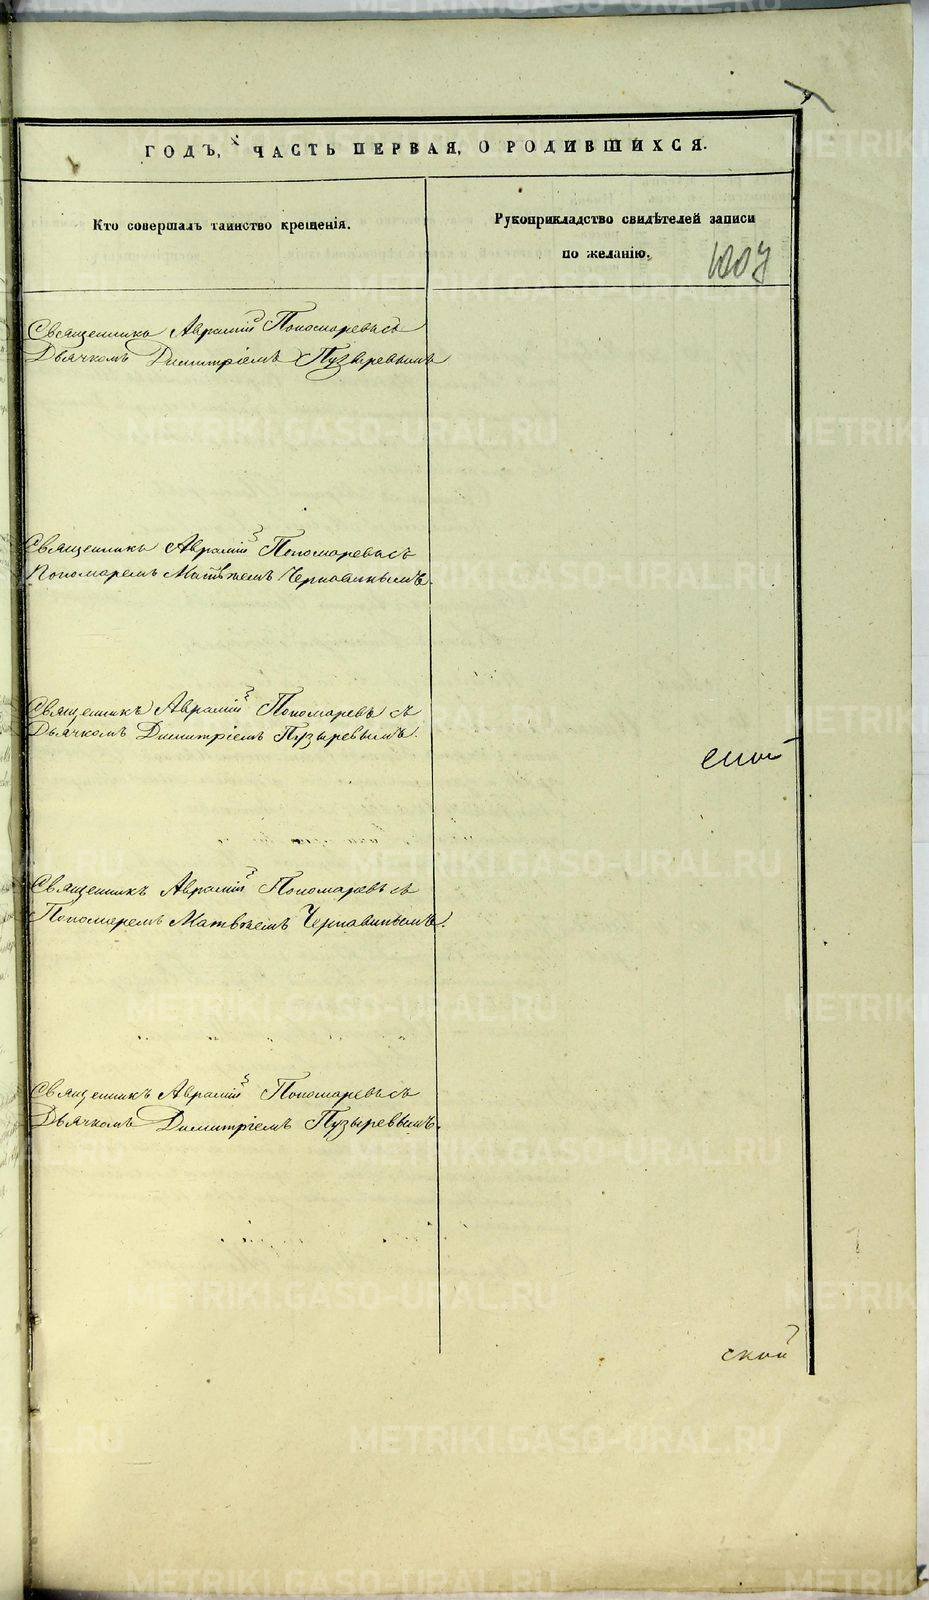 ГОДЪ, ЧАСТЬ ПЕРВАЯ, О РОДИВШИХСЯ.
Кто совершалъ таинство крещенія.
Рукоприкладство свидѣтелей записи
по желанію.
1007
Священникъ Аврамій Пономаревъ съ
Дьячкомъ Димитріемъ Пузыревымъ
Священникъ Аврамій Пономаревъ съ
Пономаремъ Матвѣемъ Чернавинымъ.
Священникъ Аврамій Пономаревъ съ
Дьячкомъ Димитріемъ Пузыревымъ.
ской
Священникъ Аврамій Пономаревъ съ
Пономаремъ Матвѣемъ Чернавинымъ.
Священникъ Аврамій Пономаревъ съ
Дьячкомъ Димитріемъ Пузыревымъ.
ской
METRIKI.GASO-URAL.RU